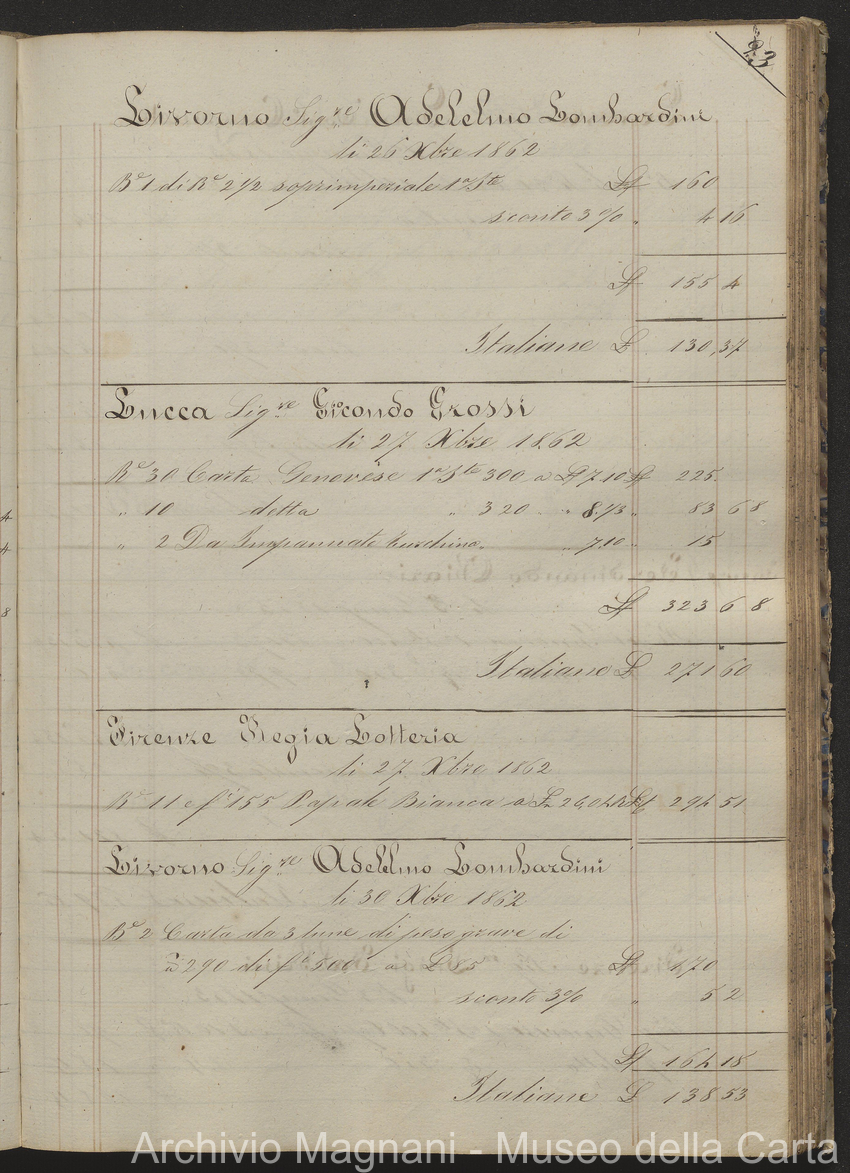 23
Livorno Sig.re Adelelmo Lombardini
li 26 Xbre 1862
Bª 1 di Rª 2 1/2 soprimperiale 1ª Ste £ 160
sconto 3 % " 4 16
£ 155 4
Italiane £ 130,37
Lucca Sig.re Giocondo Grossi
li 27 Xbre 1862
Re 30 Carta Genovese 1ª Ste 300 a £ 7.10 £ 225.
" 10 detta " 320 " " 8.7/3 " 83 6 8
" 2 Da Impannate turchina " 7.10 " 15
£ 323 6 8
Italiane £ 271 60
Firenze Regia Lotteria
li 27 Xbre 1862
Re 11 e fi 155 Papale Bianca a 26,04 £ 294 51
Livorno Sig.re Adelelmo Lombardini
li 30 Xbre 1862
Bе 2 Carta da 3 lune di peso grave di
290 di fi 500 a £ 85 £ 170
sconto 3 % " 5 2
£ 164 18
Italiane £ 138 53
4
4
8
Archivio Magnani - Museo della Carta